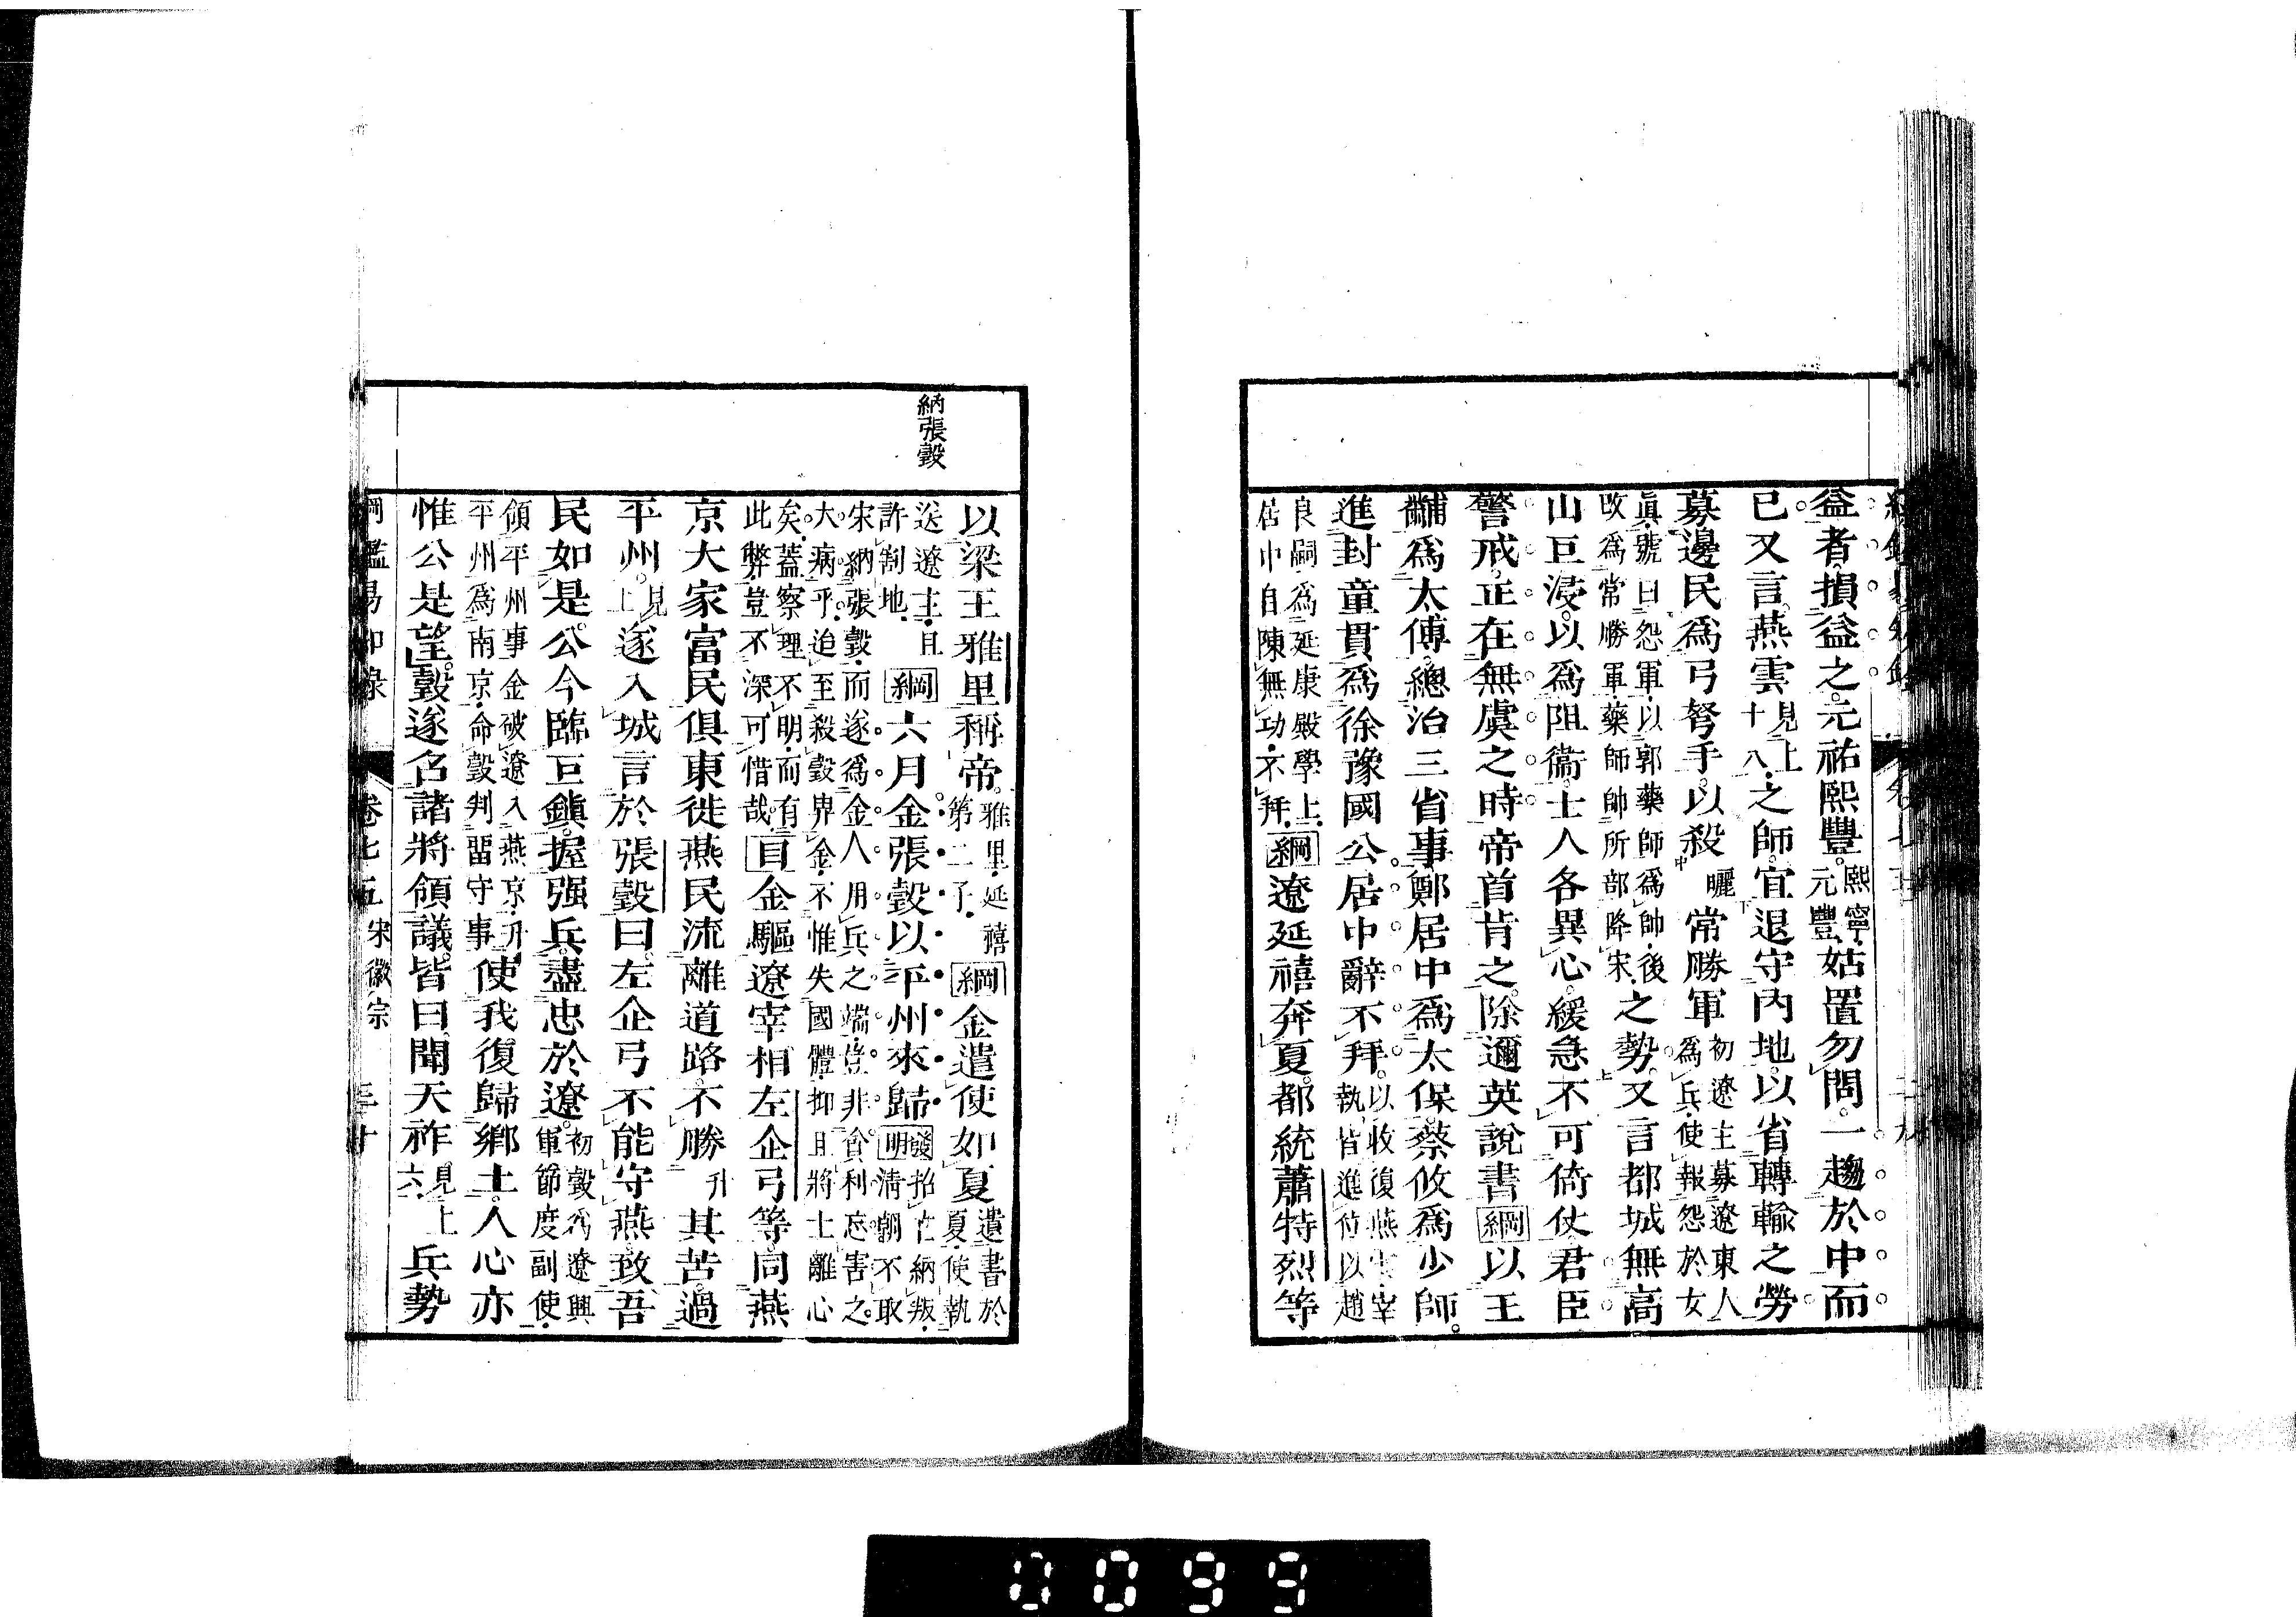 益者損益之元祐熙豐熙寧元豐姑置勿問一趨於中而
已又言燕雲見上十八之師宜退守内地以省轉輸之勞
募邊民爲弓弩手以殺常勝軍初遼主募遼東人爲兵使報怨於女
眞號曰怨軍以郭藥師爲帥後改爲常勝軍藥師帥所部降宋之勢又言都城無高
山巨浸以爲阻衞士人各異心緩急不可倚仗君臣
警戒正在無虞之時帝首肯之除邇英說書綱以王
黼爲太傅總治三省事鄭居中爲太保蔡攸爲少師
進封童貫爲徐豫國公居中辭不拜以收復燕雲宰執皆進位以趙
良嗣爲延康殿學上居中自陳無功不拜綱遼延禧奔夏都統蕭特烈等
納張瑴
以梁王雅里稱帝雅里延禧第二子綱金遣使如夏遣書於夏使執
送遼主且許割地綱六月金張瑴以平州來歸發明招亡納叛淸朝不取
宋納張瑴而遂爲金人用兵之端豈非貪利忘害之大病乎追至殺瑴畀金不惟失國體抑且將士離心
矣蓋察理不明而有此弊豈不深可惜哉目金驅遼宰相左企弓等同燕
京大家富民俱東徙燕民流離道路不勝其苦過
平州見上遂入城言於張瑴曰左企弓不能守燕致吾
民如是公今臨巨鎭握强兵盡忠於遼初瑴爲遼興軍節度副使
領平州事金破遼入燕京升平州爲南京命瑴判留守事使我復歸鄕土人心亦
惟公是望瑴遂召諸將領議皆曰聞天祚見上六兵勢
綱鑑易知錄 卷七五 宋徽宗